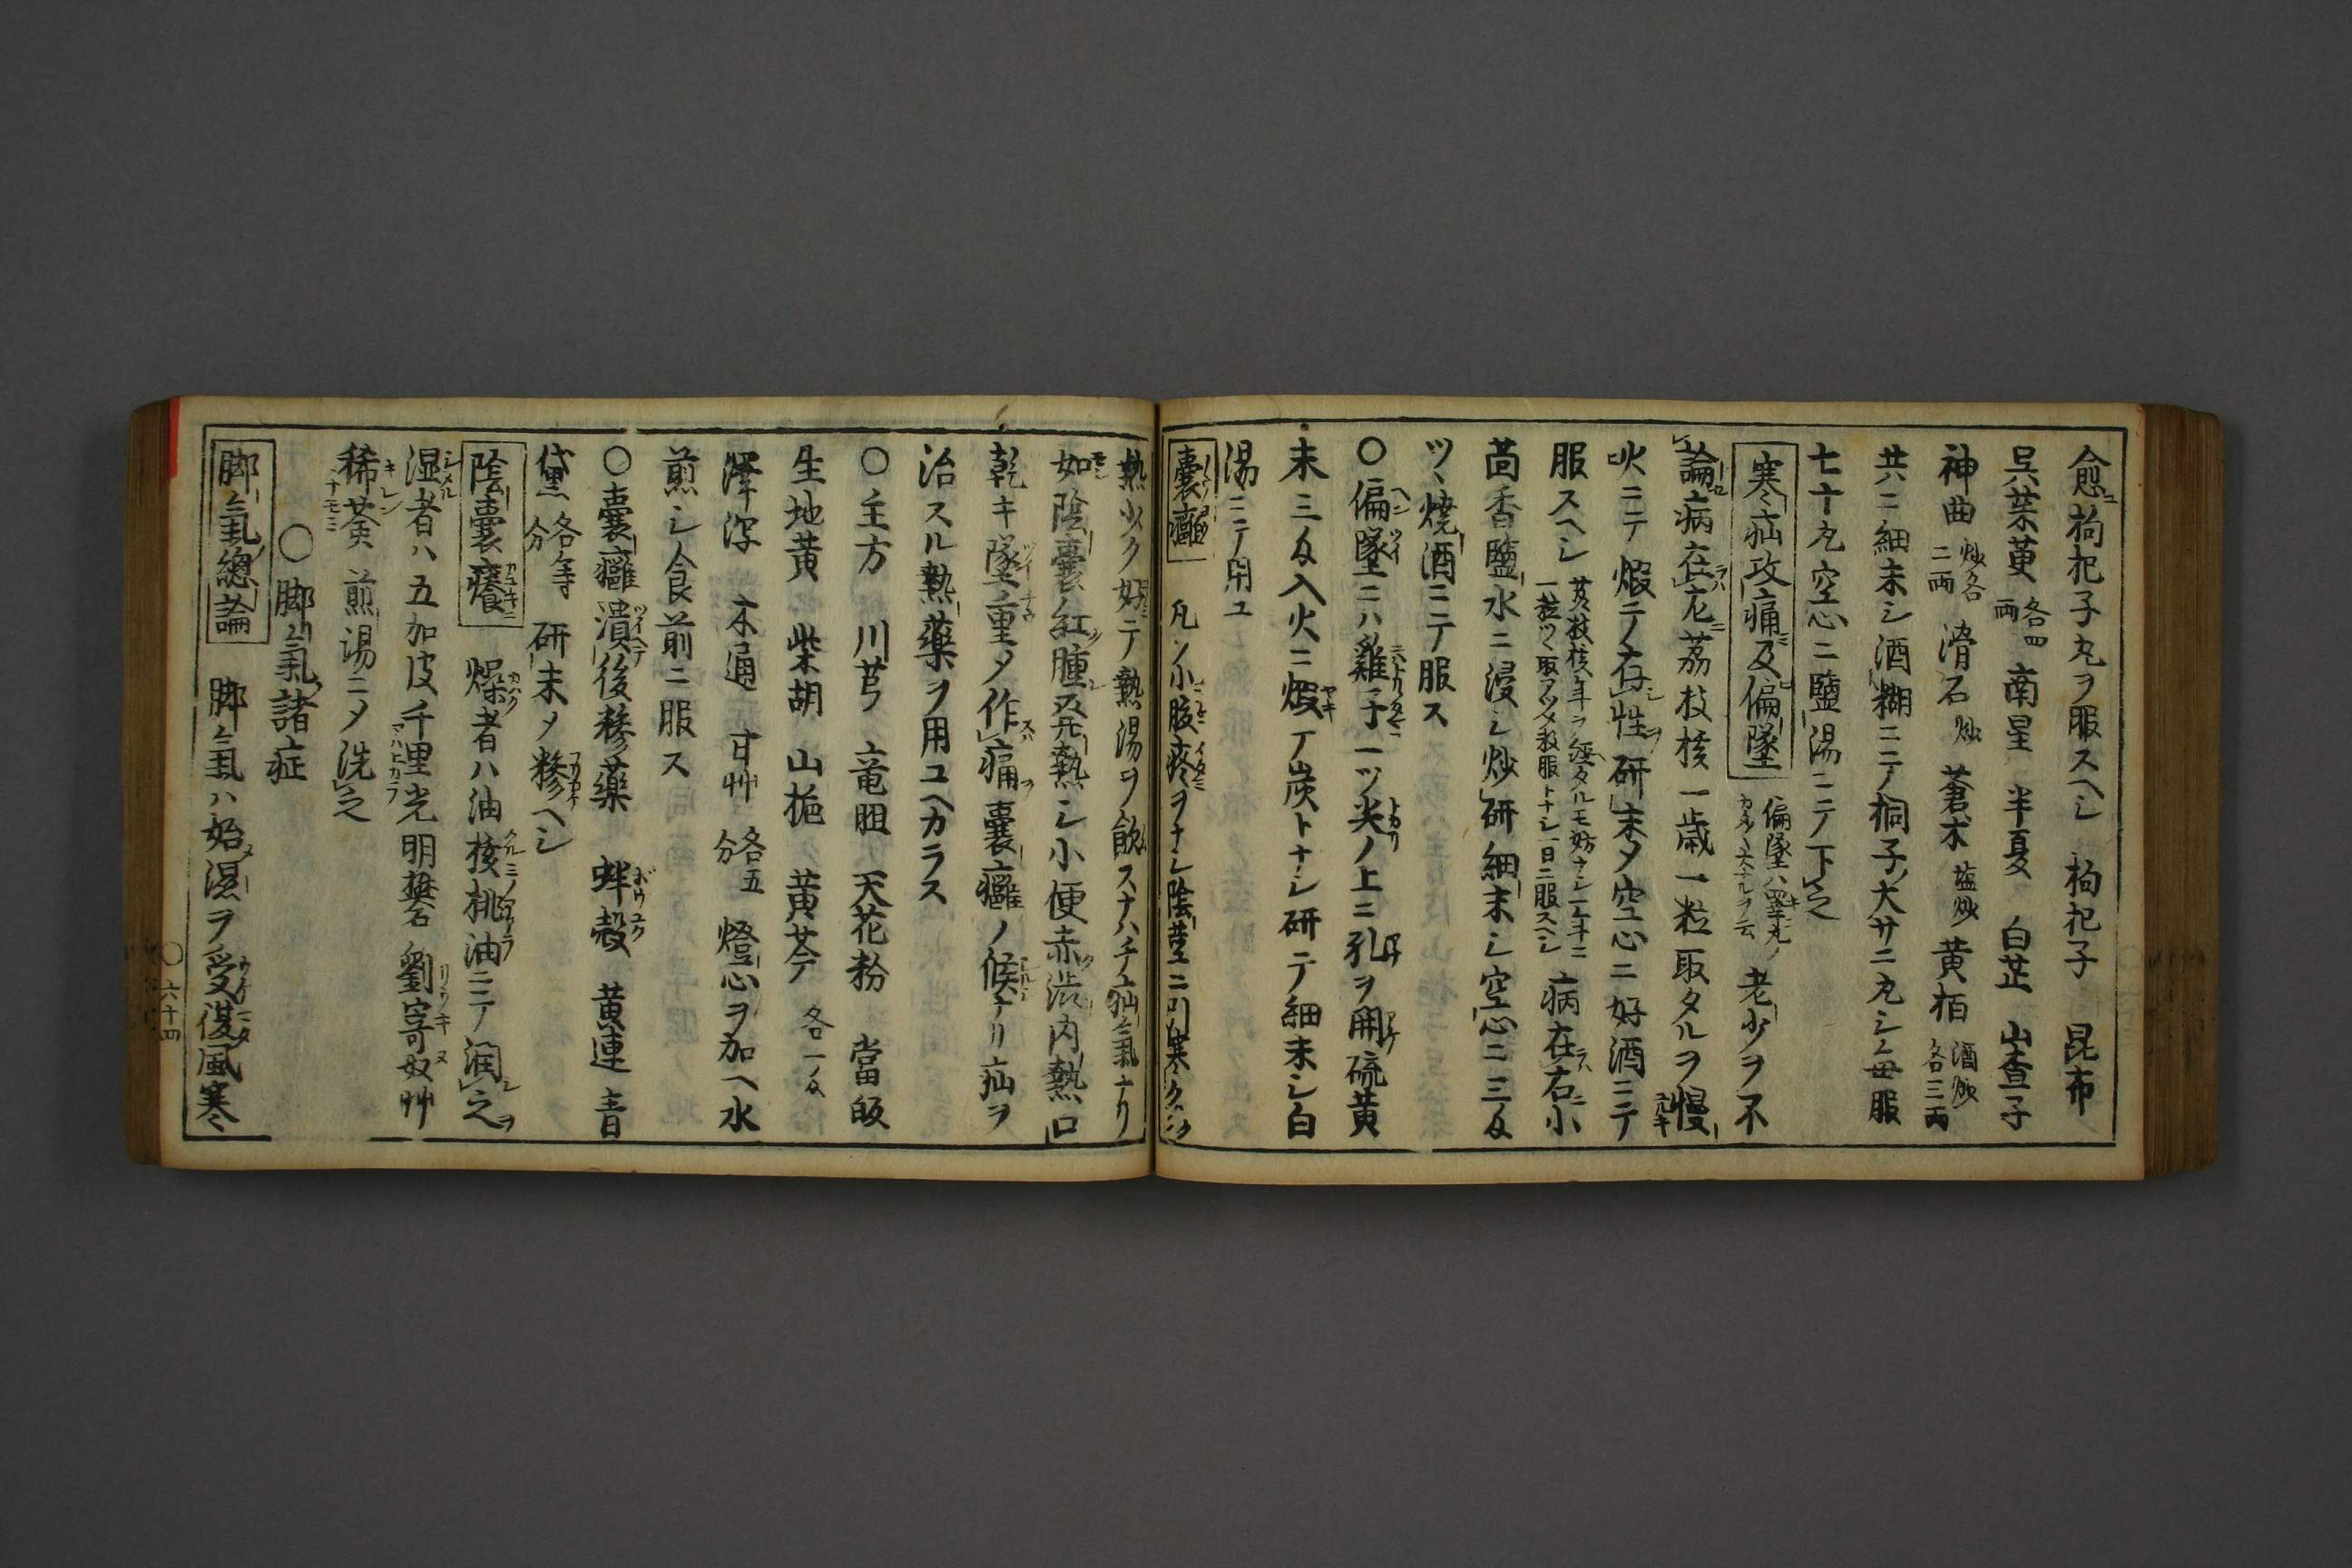 愈枸杞子丸ヲ服スヘシ 枸杞子 昆布
呉茱萸 各四両 南星 半夏 白芷 山査子
神曲 炒各二両 滑石 炒 蒼朮 塩炒 黄栢 酒炒各三両
共ニ細末シ酒糊ニニテ桐子大サニ丸シ毎服
七十丸空心ニ鹽湯ニテ下之
寒疝攻痛及偏墜 偏墜ハ睾丸ノカタ〱大ナルヲ云 老少ヲ不
論病在左茘枝核一歳一粒取タルヲ慢
火ニテ煆テ存性研末メ空心ニ好酒ニテ
服スヘシ 茘枝核年ヲ經タルモ妨ナシ一年ニ一粒ツヽ取アツメ教服トナシ一日ニ服スヘシ 病在右小
茴香鹽水ニ浸シ炒研細末シ空心ニ三匁
ツヽ燒酒ニテ服ス
〇偏墜ニハ雞子一ツ尖ノ上ニ孔ヲ開硫黄
末三匁入火ニ煆テ炭トナシ研テ細末シ白
湯ニテ用ユ
囊癰 凡ソ小腹疼ヲナシ陰莖ニ引寒多
熱少ク好テ熱湯ヲ飲スナハチ疝氣ナリ
如陰囊紅腫発熱シ小便赤渋内熱口
乾キ墜重メ作痛囊癰ノ候ナリ疝ヲ
治スル熱藥ヲ用ユヘカラス
〇主方 川芎 竜胆 天花粉 當皈
生地黄 柴胡 山梔 黄芩 各一匁
澤泻 木通 甘艸 各五分 燈心ヲ加ヘ水
煎シ食前ニ服ス
〇囊癰潰後糝藥 蚌殻 黄連 青
黛 各等分 研末メ糝ヘシ
陰囊癢 燥者ハ油核桃油ニテ潤之
湿者ハ五加皮千里光明礬 劉寄奴艸
稀薟煎湯ニメ洗之
〇脚氣諸症
脚氣總論 脚氣ハ始濕ヲ受復風寒
〇六十四